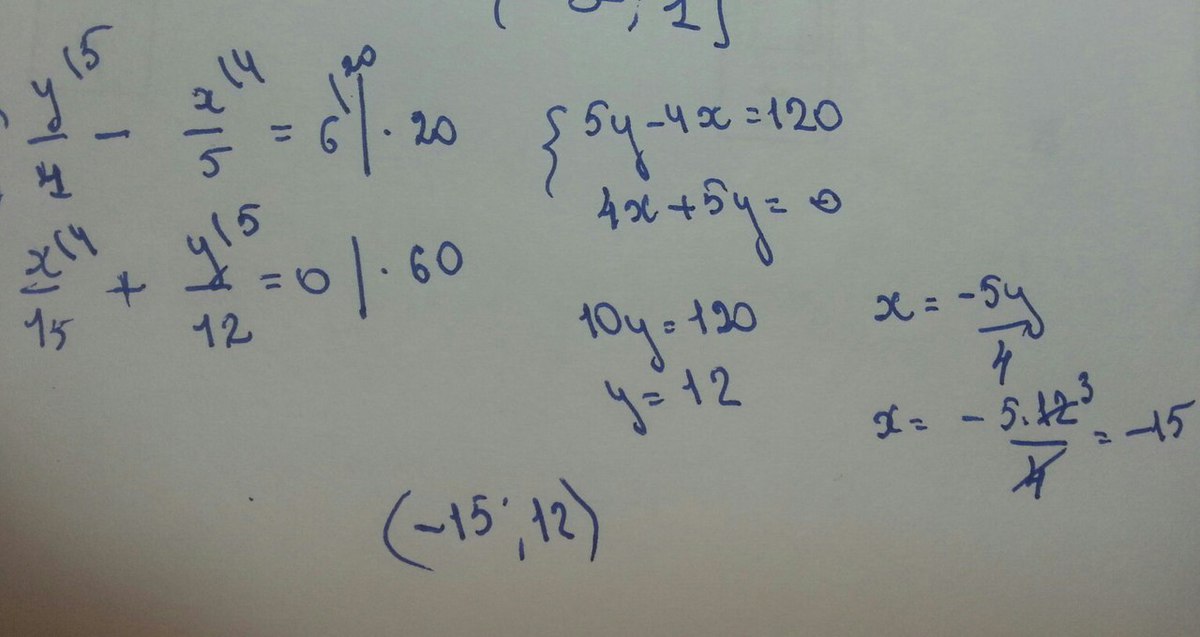 ; 1]
y\5/4 - x\4/5 = 6\20 | · 20
x\4/15 + y\5/12 = 0 | · 60
{ 5y - 4x = 120
4x + 5y = 0
10y = 120
y = 12
x = -5y/4
x = - 5·12 3/4 = -15
(-15; 12)